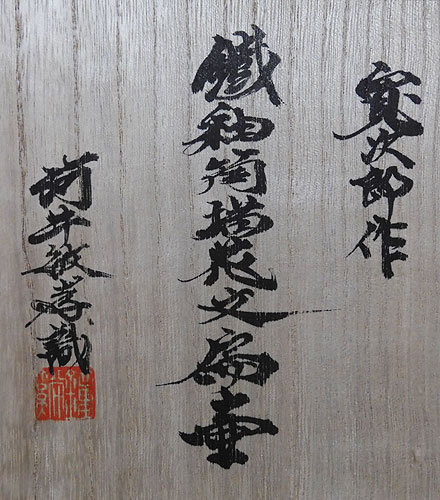 寛次郎作
鐵釉筒描花文扁壷
河井敏孝識